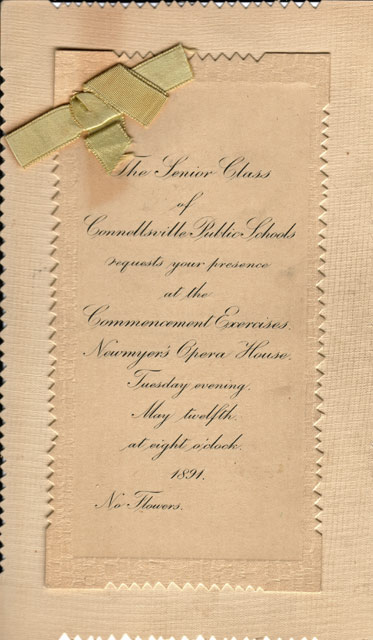 The Senior Class
of
Connellsville Public Schools
requests your presence
at the
Commencement Exercises.
Newmyer's Opera House.
Tuesday evening.
May twelfth.
at eight o'clock.
1891.
No Flowers.